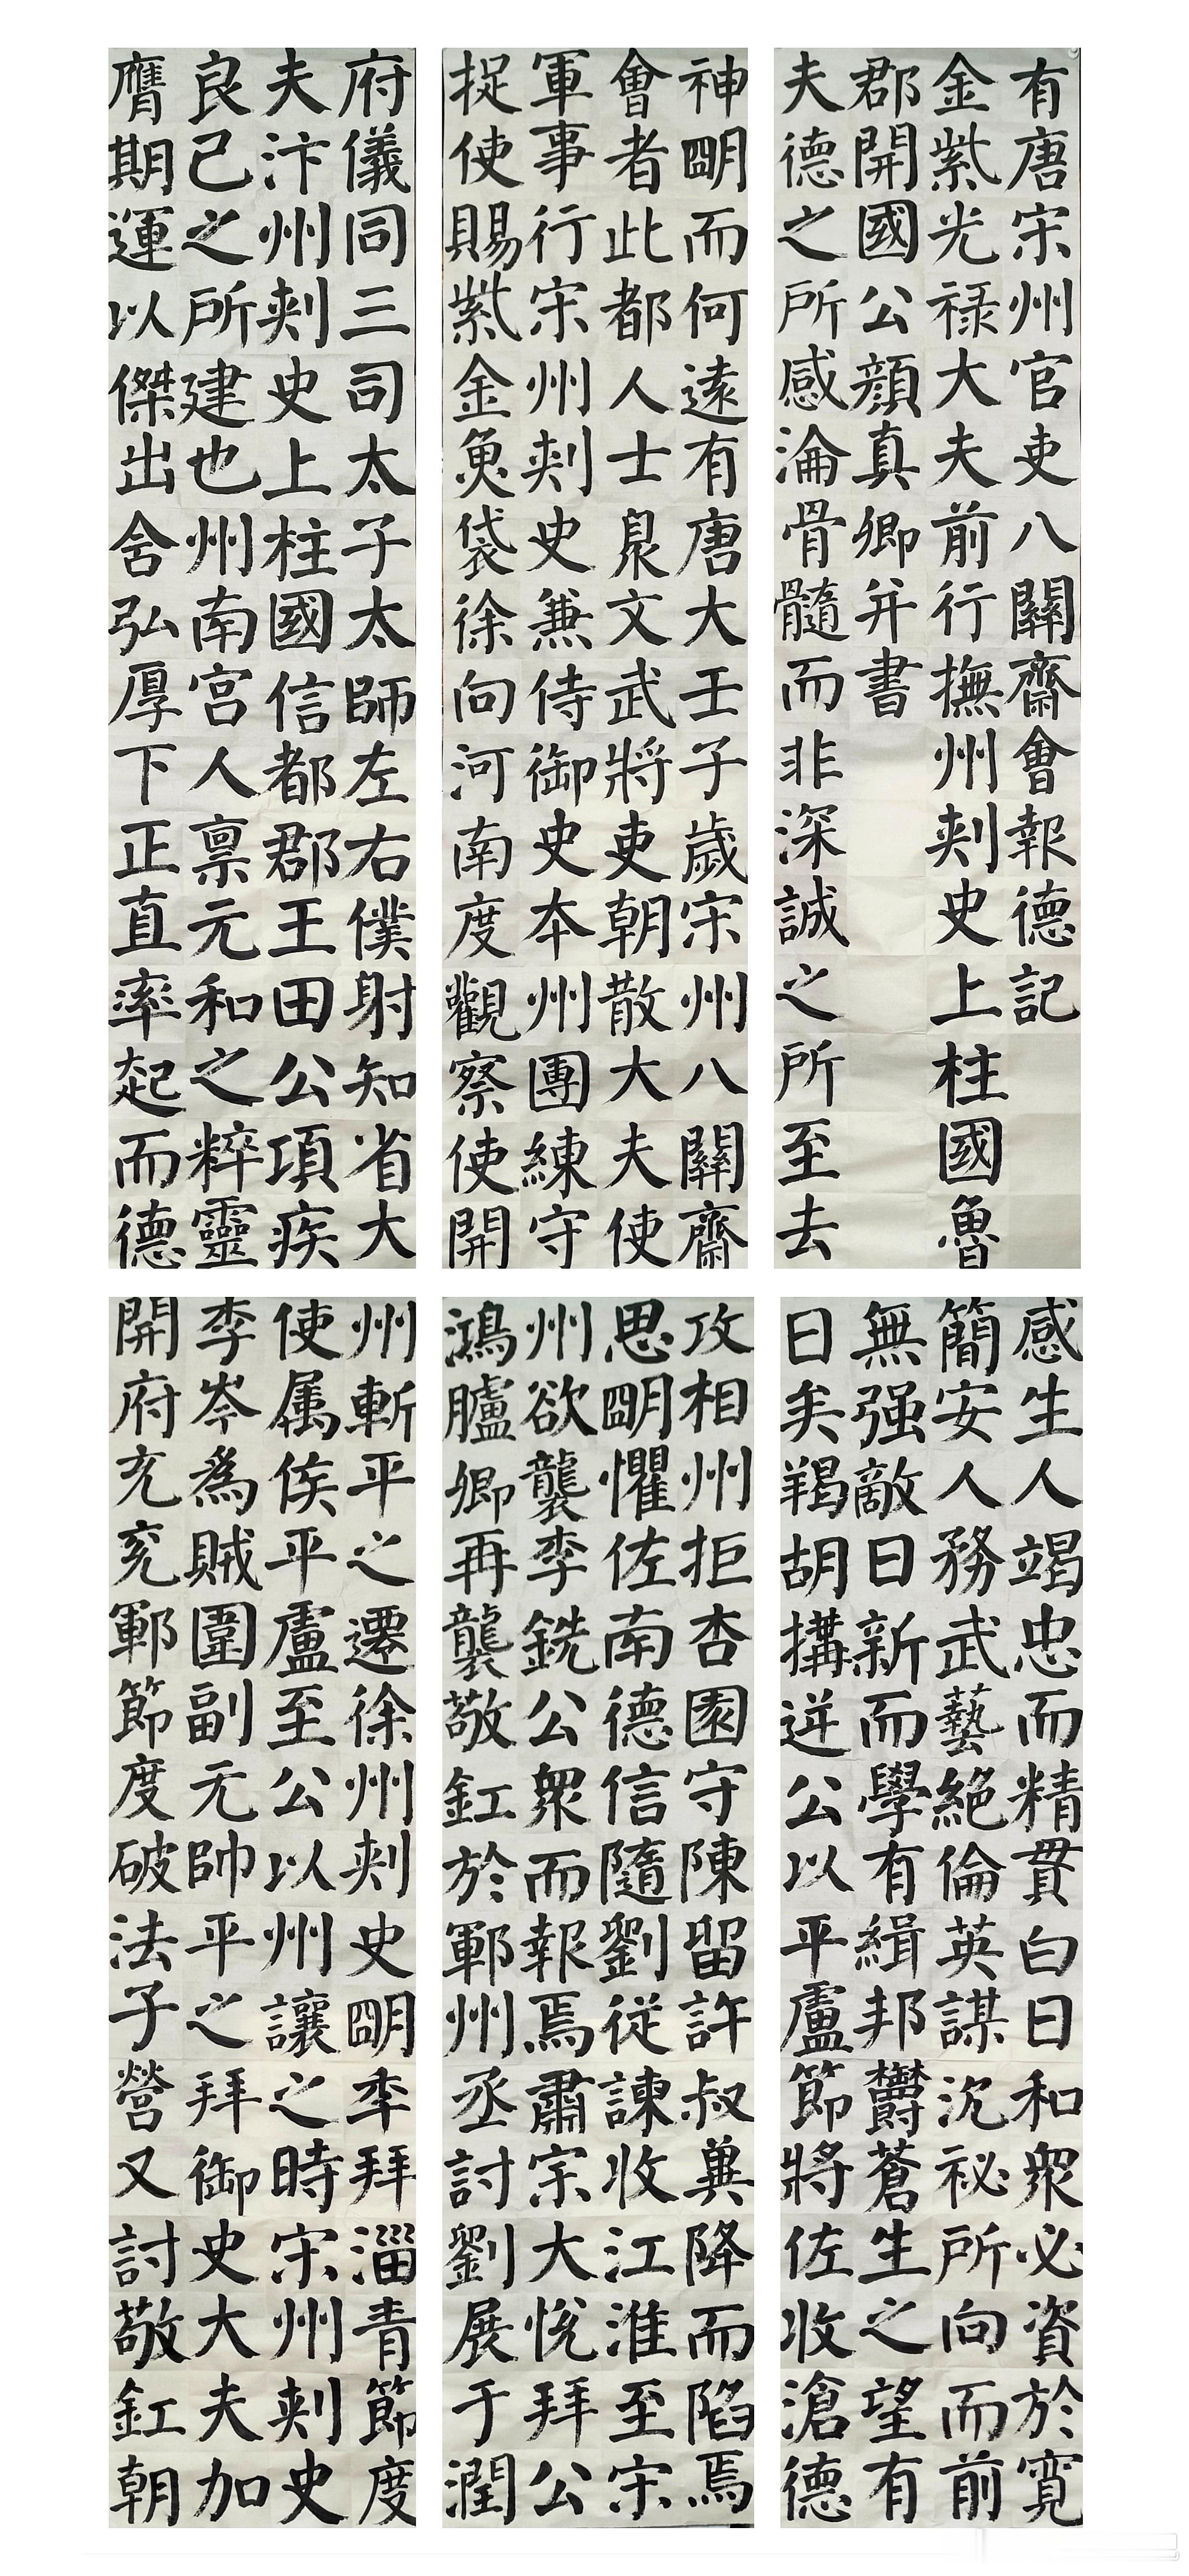 有唐宋州官吏八關齋會報德記
金紫光禄大夫前行撫州刺史上柱國魯
郡開國公顔真卿并書
夫德之所感淪骨髓而非深誠之所至去
神明而何遠有唐大壬子歲宋州八關齋
會者此都人士衆文武將吏朝散大夫使
持軍事行宋州刺史兼侍御史本州團練守
捉使賜紫金魚袋徐向河南度觀察使開
府儀同三司太子太師左右僕射知省大
夫汴州刺史上柱國信都郡王田公頃疾
良已之所建也州南宫人禀元和之粹靈
膺期運以傑出含弘厚下正直率起而德
感生人竭忠而精貫白日和衆必資於寛
簡安人務武藝絶倫英謀沉祕所向而前
無强敵日新而學有緝邦欝蒼生之望有
日矣羯胡搆逆公以平盧節將佐收滄德
攻相州拒杏園守陳留許叔冀降而陷焉
思明懼佐南德信隨劉從諫收江淮至宋
州欲襲李銑公衆而報焉肅宗大悦拜公
鴻臚卿再襲敬釭於鄆州丞討劉展于潤
州斬平之遷徐州刺史明年拜淄青節度
使属侯平盧至公以州讓之時宋州刺史
李岑爲賊圍副元帥平之拜御史大夫加
開府充兖鄆節度破法子營又討敬釭朝